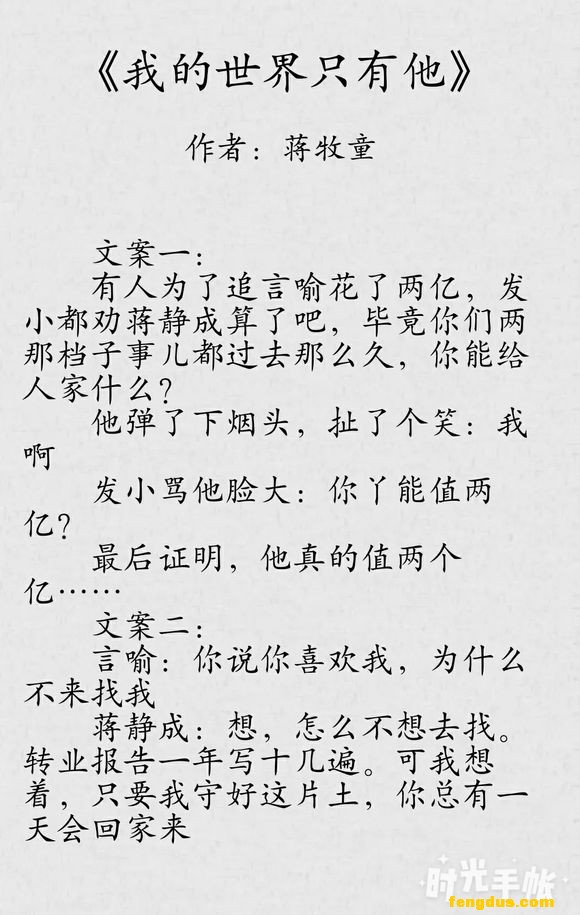 《我的世界只有他》
作者：蒋牧童
文案一：
有人为了追言喻花了两亿，发
小都劝蒋静成算了吧，毕竟你们两
那档子事儿都过去那么久，你能给
人家什么？
他弹了下烟头，扯了个笑：我
啊
发小骂他脸大：你丫能值两
亿？
最后证明，他真的值两个
亿……
文案二：
言喻：你说你喜欢我，为什么
不来找我
蒋静成：想，怎么不想去找。
转业报告一年写十几遍。可我想
着，只要我守好这片土，你总有一
天会回家来
时光手帐
fengdus.com